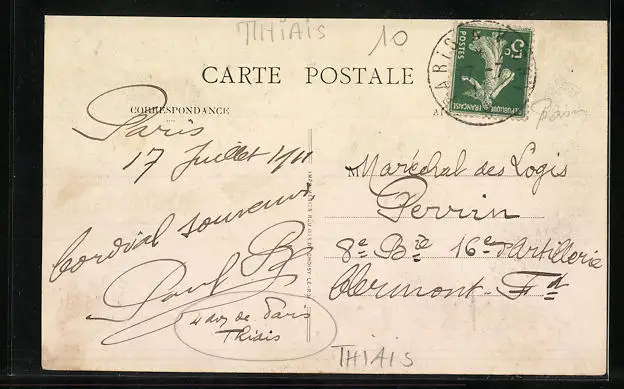 THIAIS
10
CARTE POSTALE
CORRESPONDANCE
PARIS
5c
POSTES
REPUBLIQUE FRANÇAISE
Paris
17 Juillet 1911
Cordial souvenir
Paul
4 av de Paris
Thiais
M Maréchal des Logis
Perrin
8e Bie 16e d'Artillerie
Clermont-Fd
THIAIS